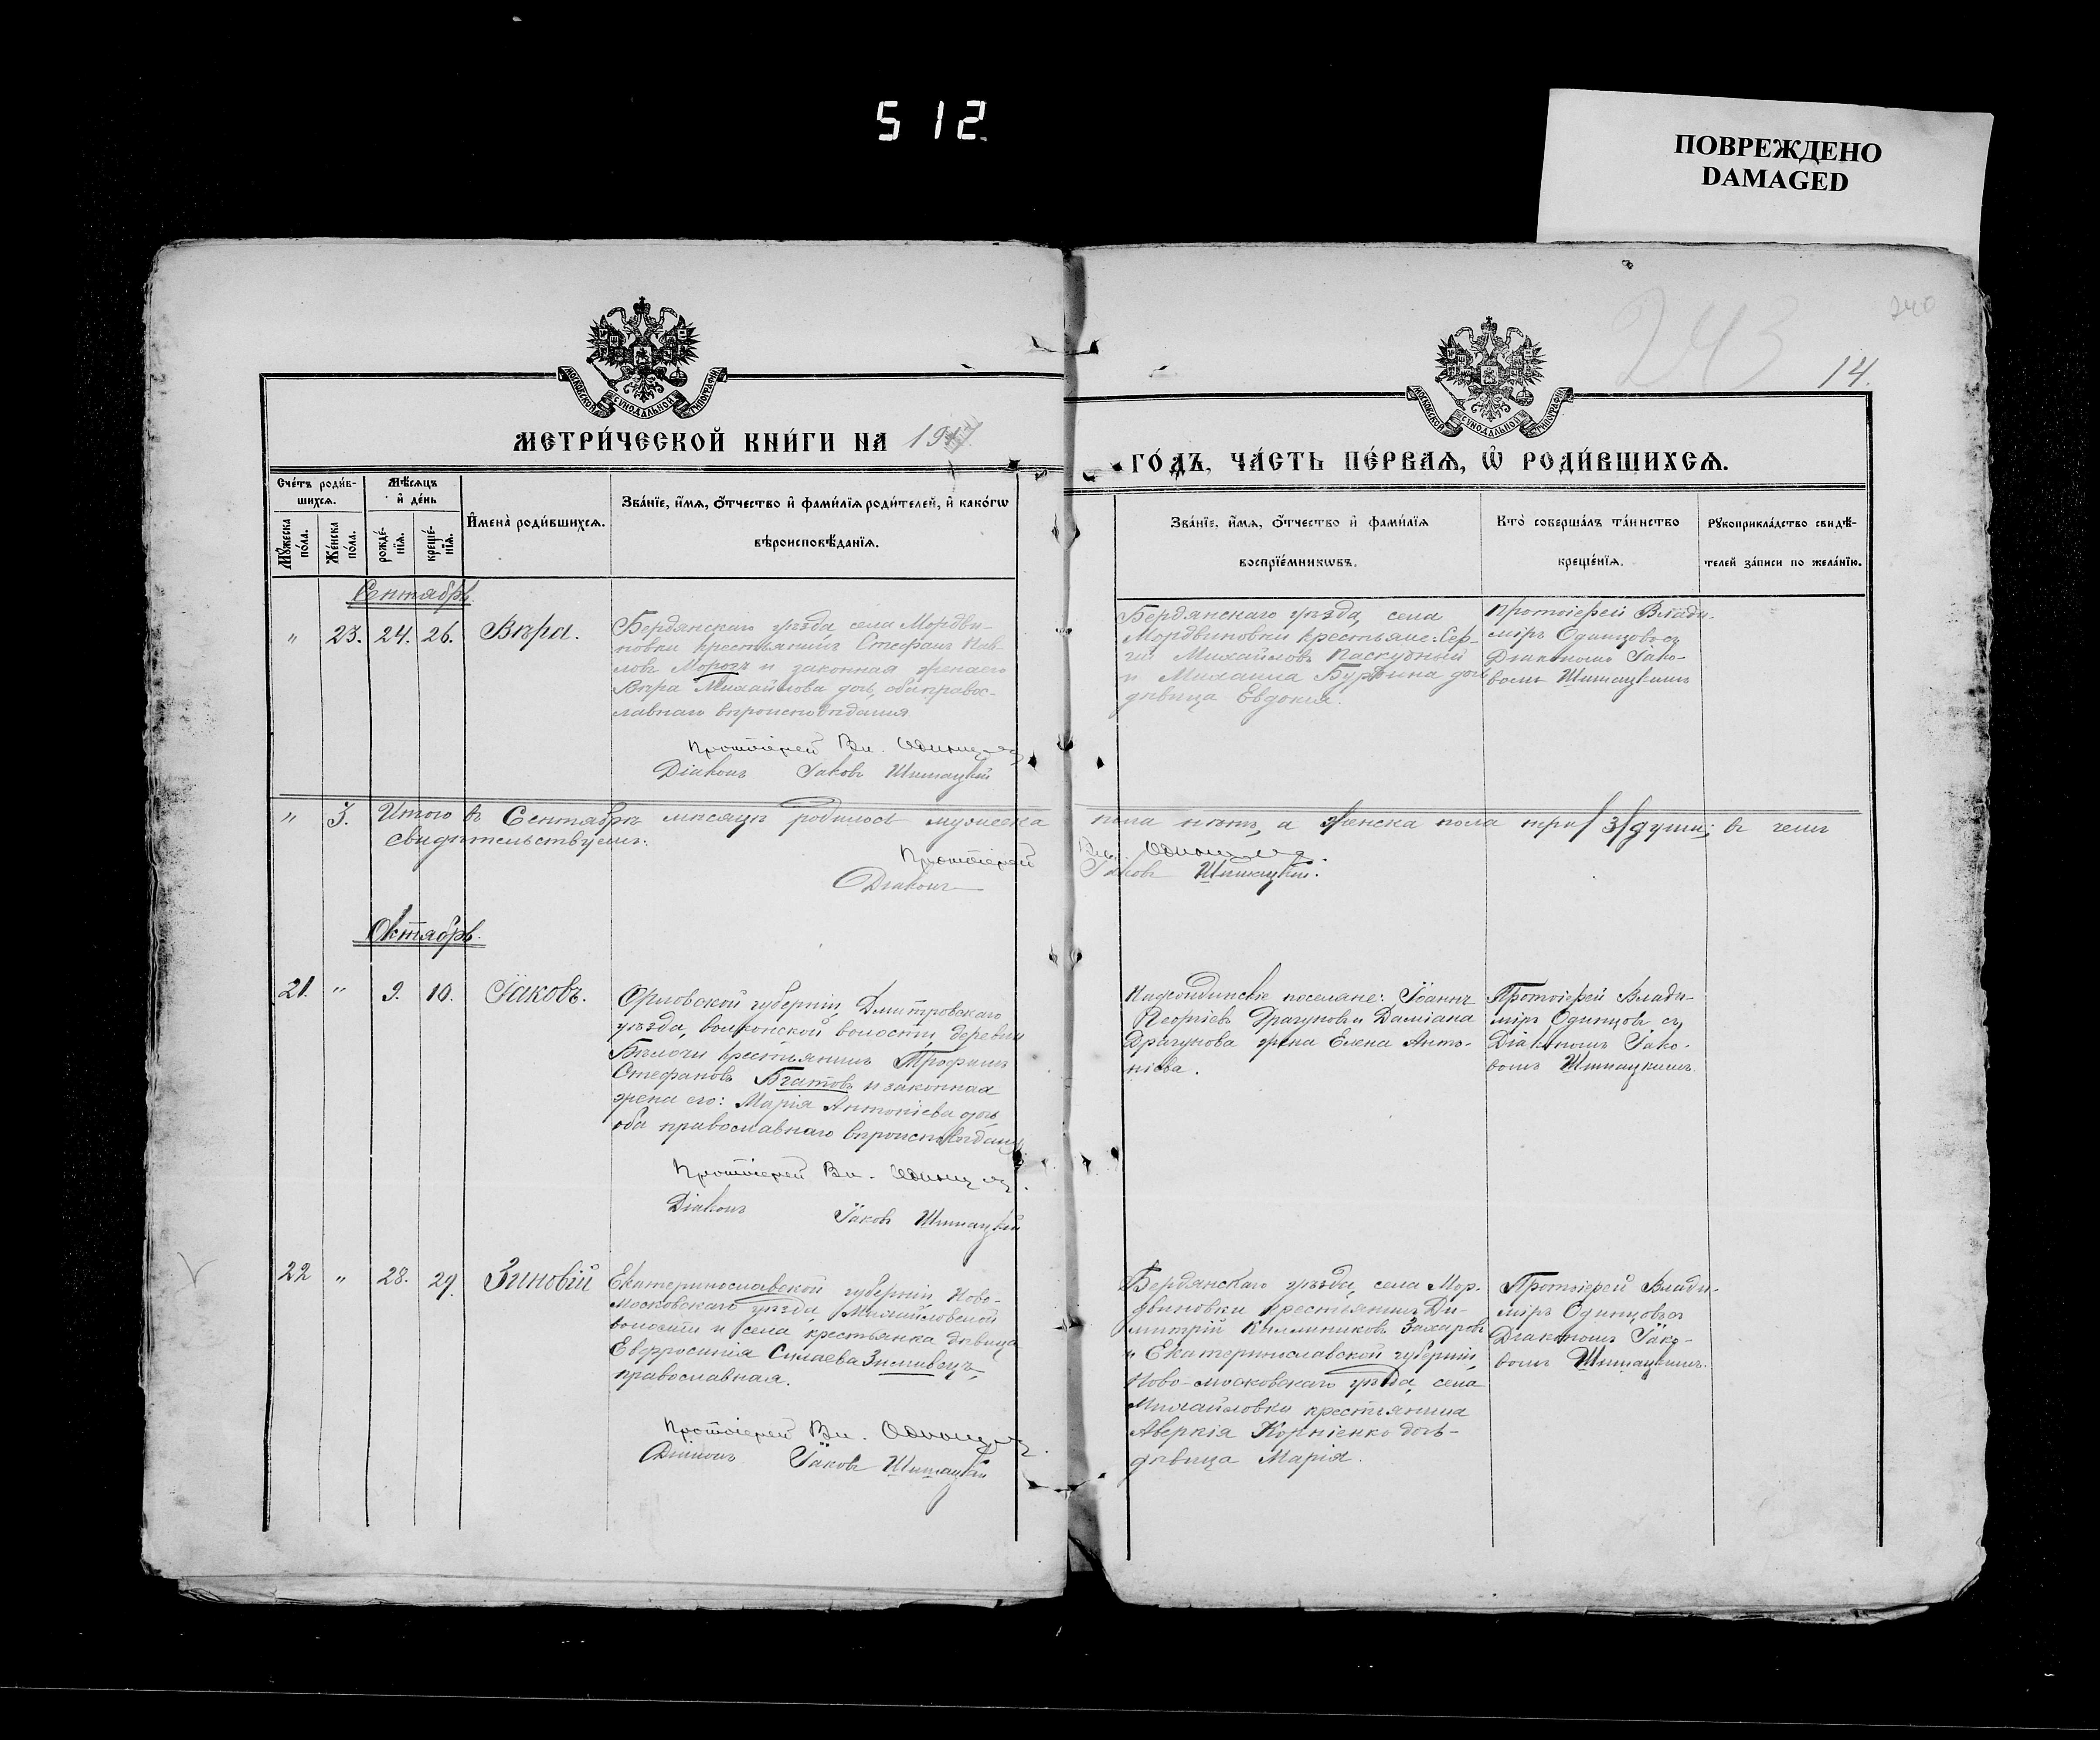 512
ПОВРЕЖДЕНО
DAMAGED
243
240
14.
МОСКОВСКОЙ СУНОДАЛЬНОЙ ТИПОГРАФІИ
МОСКОВСКОЙ СУНОДАЛЬНОЙ ТИПОГРАФІИ
МЕТРИ́ЧЕСКОЙ КНИ́ГИ НА 19
ГО́ДЪ, ЧА́СТЬ ПЕ́РВАЯ, Ѽ РОДИ́ВШИХСЯ.
Сче́тъ роди́в-
шихся.
Мѣ́сяцъ
и҆ де́нь
Мꙋ́жеска по́ла.
Же́нска по́ла.
рожде́-
нїя.
креще́-
нїя.
И҆мена̀ роди́вшихся.
Зва́нїе, и҆́мя, ѻ҆́тчество и҆ фами́лїя роди́телей, и҆ како́гѡ
вѣроисповѣ́данїя.
Зва́нїе, и҆́мя, ѻ҆́тчество и҆ фами́лїя
воспрїе́мникѡвъ.
Кто̀ соверша́лъ та́инство
креще́нїя.
Рꙋкоприкла́дство свидѣ́-
телей за́писи по жела́нїю.
Сентябрь.
" 23. 24. 26. Вѣра.
Бердянскаго уѣзда села Мордви-
новки крестьянинъ Стефанъ Пав-
ловъ Морозъ и законная жена его
Вѣра Михайлова дочь, оба правос-
лавнаго вѣроисповѣданія
Протоіерей Вл. Одинцовъ
Діаконъ Іаковъ Шишацкій
Бердянскаго уѣзда, села
Мордвиновки крестьяне: Сер-
гій Михайловъ Паскудный
и Михаила Бурдина дочь
дѣвица Евдокія.
Протоіерей Влади-
міръ Одинцовъ съ
Діакономъ Іако-
вомъ Шишацкимъ
" 3. Итого въ Сентябрѣ мѣсяцѣ родилось мужеска пола нѣтъ, а женска пола три /3/ души; въ чемъ
свидѣтельствуемъ:
Протоіерей Вл. Одинцовъ.
Діаконъ Іаковъ Шишацкій.
Октябрь.
21. " 9. 10. Іаковъ.
Орловской губерніи, Дмитровскаго
уѣзда, волконской волости, деревни
крестьянинъ Трофимъ
Стефановъ и законная
жена его: Марія Антоніева дочь
оба православнаго вѣроисповѣданія
Протоіерей Вл. Одинцовъ.
Діаконъ Іаковъ Шишацкій
поселяне: Іоаннъ
Георгіевъ Драгуновъ и Даміана
Драгунова жена Елена Анто-
ніева.
Протоіерей Влади-
міръ Одинцовъ съ
Діакономъ Іако-
вомъ Шишацкимъ.
22 " 28. 29. Зиновій
Екатеринославской губерніи Ново-
московскаго уѣзда, Михайловской
волости и села крестьянка дѣвица
Евфросинія
православная.
Протоіерей Вл. Одинцовъ.
Діаконъ Іаковъ Шишацкій
Бердянскаго уѣзда, села Мор-
двиновки крестьянинъ Ди-
митрій Захаровъ
и Екатеринославской губерніи,
Ново-московскаго уѣзда, села
Михайловки крестьянина
Аверкія Корніенко дочь-
дѣвица Марія.
Протоіерей Влади-
міръ Одинцовъ съ
Діакономъ Іако-
вомъ Шишацкимъ.